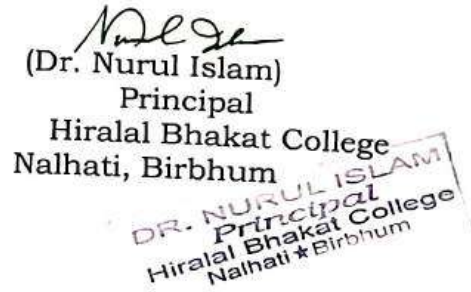 (Dr. Nurul Islam)
Principal
Hiralal Bhakat College
Nalhati, Birbhum
DR. NURUL ISLAM
Principal
Hiralal Bhakat College
Nalhati★Birbhum